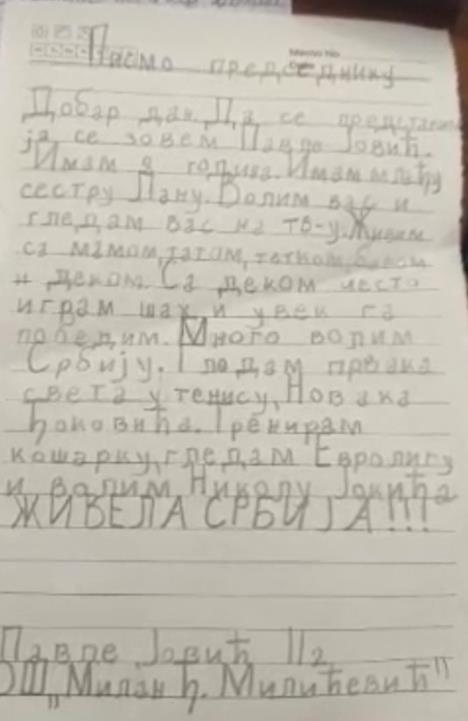 Писмо председнику
Добар дан. Да се представим
ја се зовем Павле Јовић.
Имам 8 година. Имам млађу
сестру Лану. Волим вас и
гледам вас на ТВ-у. Живим
са мамом, татом, тетком, бабом
и деком. Са деком често
играм шах и увек га
победим. Много волим
Србију. Гледам првака
света у тенису, Новака
Ђоковића. Тренирам
кошарку, гледам Евролигу
и волим Николу Јокића
ЖИВЕЛА СРБИЈА!!!
Павле Јовић II2
ОШ „Милан Ђ. Милићевић"